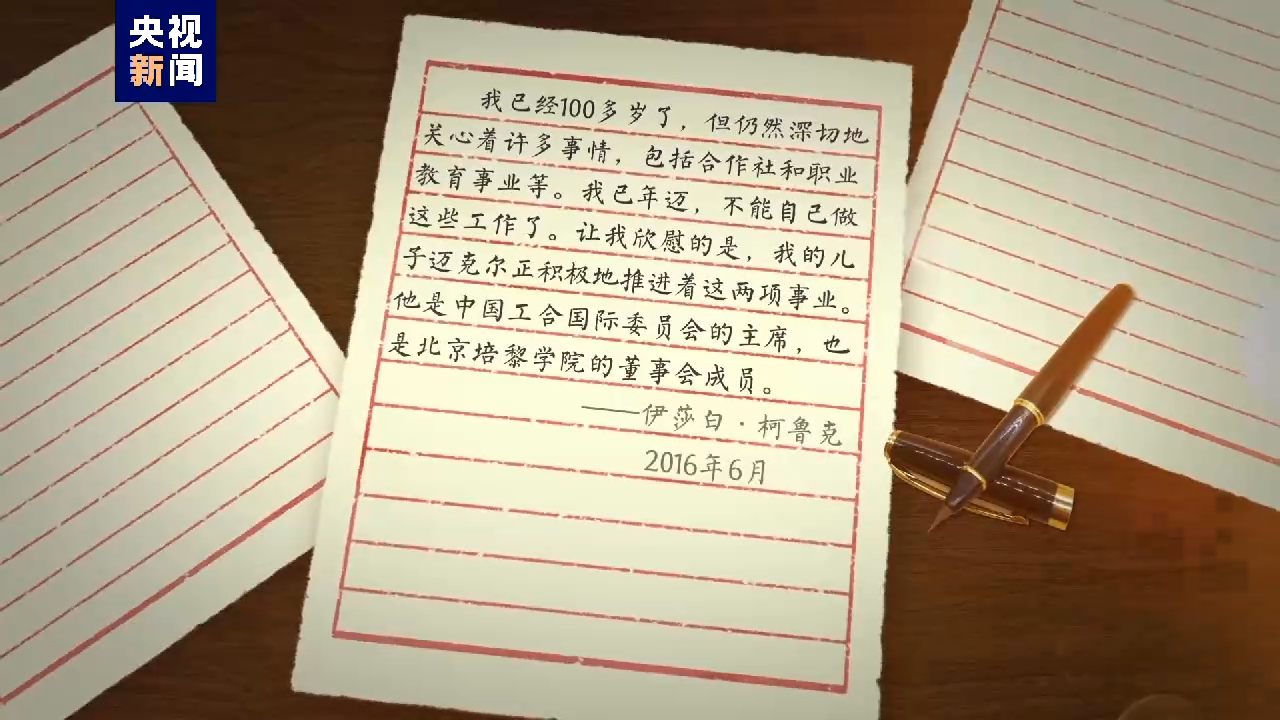 央视
新闻
我已经100多岁了，但仍然深切地
关心着许多事情，包括合作社和职业
教育事业等。我已年迈，不能自己做
这些工作了。让我欣慰的是，我的儿
子迈克尔正积极地推进着这两项事业。
他是中国工合国际委员会的主席，也
是北京培黎学院的董事会成员。
——伊莎白·柯鲁克
2016年6月